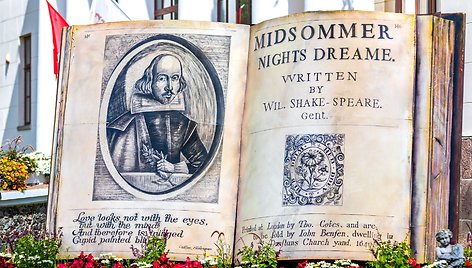 Love looks not with the eyes,
but with the mind
And therefore is winged
Cupid painted
MIDSOMMER
NIGHTS DREAME.
VVRITTEN
BY
WIL. SHAKE-SPEARE.
Gent.
Printed at London by Tho. Cotes, and are
to be sold by John Benson, dwelling in
Dunstans Church yard. 1640